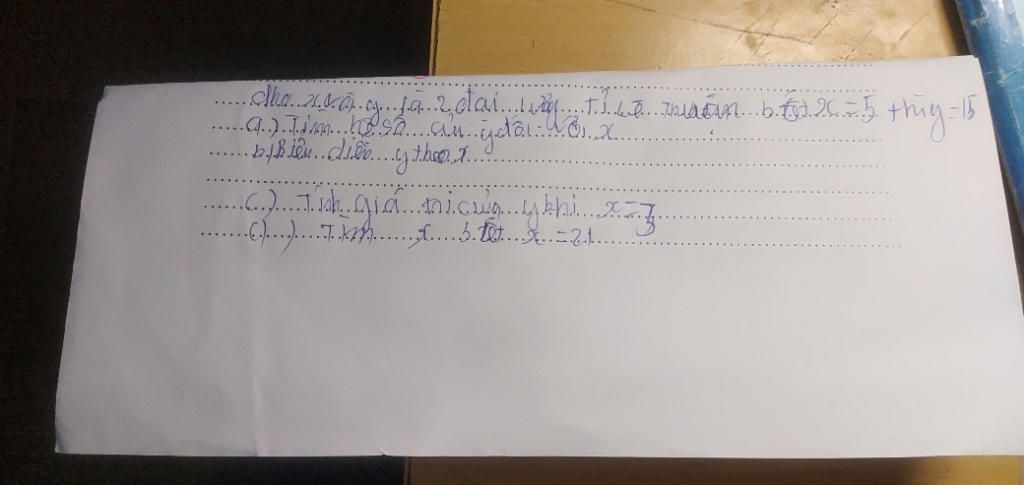 Cho x và y là 2 đại lượg tỉ lệ thuận biết x = 5 thì y = 15
a.) Tìm hệ số của y đối với x
b.) Biểu diễn y theo x
c.) Tính giá trị của y khi x =
d) Tìm x biết x = 21